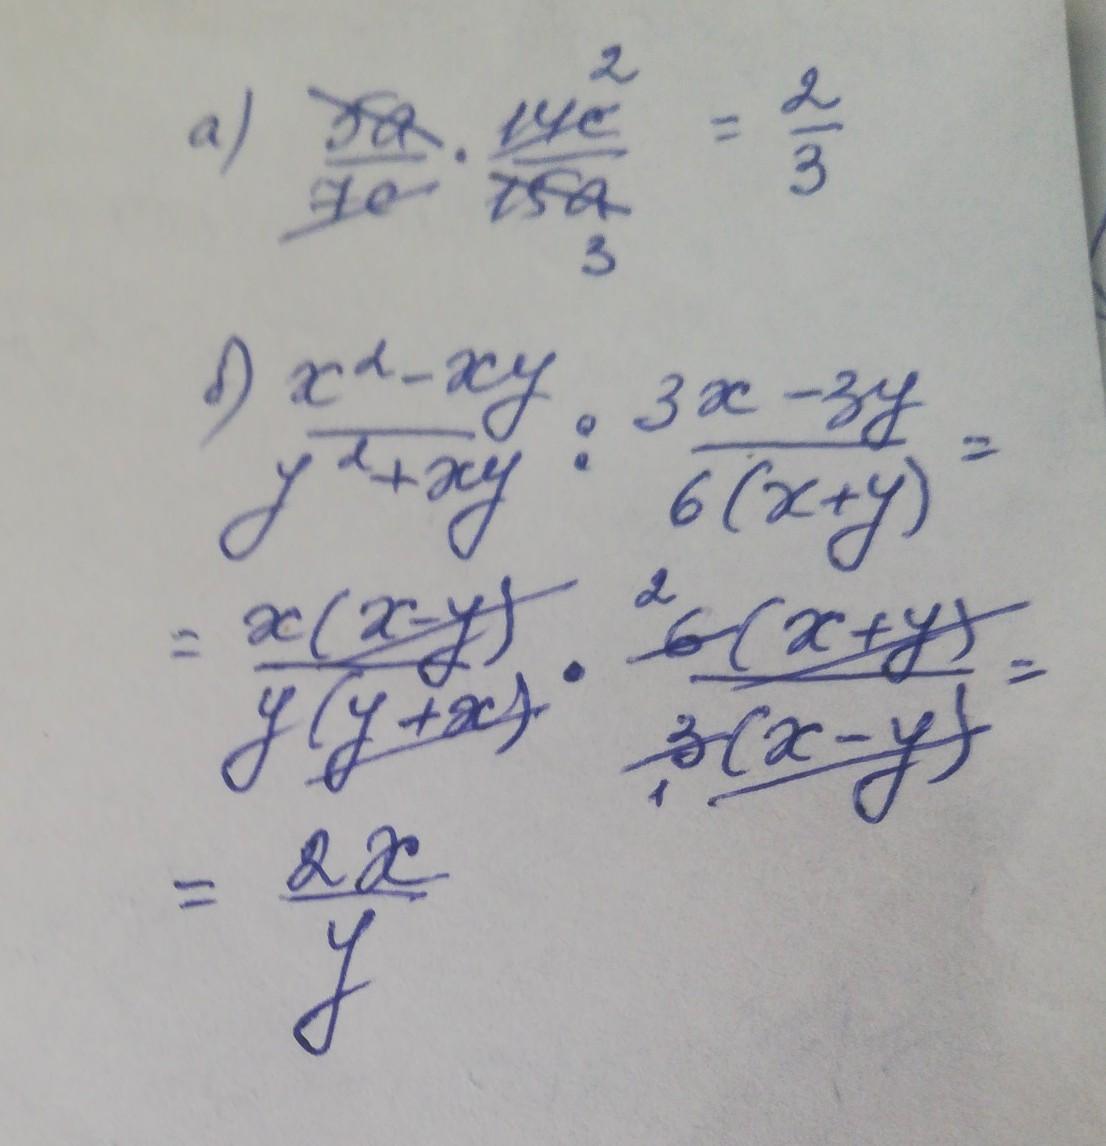 а) 5a/7c · 14c/15a = 2/3
2
3
б) x² - xy / y² + xy : 3x - 3y / 6(x+y) =
= x(x-y) / y(y+x) · 6(x+y) / 3(x-y) =
2
1
= 2x / y